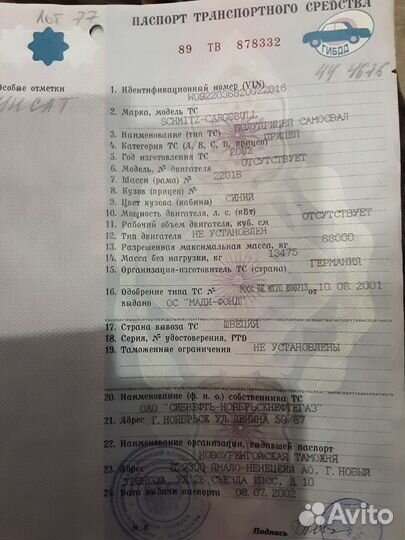 Лот 77
ПАСПОРТ ТРАНСПОРТНОГО СРЕДСТВА
89 ТВ 878332
ГИБДД
Особые отметки
1. Идентификационный номер (VIN)
W0922036820022018
2. Марка, модель ТС
SCHMITZ-CARGOBULL
3. Наименование (тип ТС) ПОЛУПРИЦЕП САМОСВАЛ
4. Категория ТС (A, B, C, D, прицеп) ПРИЦЕП
5. Год изготовления ТС 2002
6. Модель, № двигателя ОТСУТСТВУЕТ
7. Шасси (рама) № 22018
8. Кузов (прицеп) №
9. Цвет кузова (кабины) СИНИЙ
10. Мощность двигателя, л. с. (кВт)
11. Рабочий объем двигателя, куб. см ОТСУТСТВУЕТ
12. Тип двигателя НЕ УСТАНОВЛЕН
13. Разрешенная максимальная масса, кг 66000
14. Масса без нагрузки, кг 13475
15. Организация-изготовитель ТС (страна) ГЕРМАНИЯ
16. Одобрение типа ТС № от 10.09.2001
выдано ОС "МАДИ-ФОНД"
17. Страна вывоза ТС ШВЕЦИЯ
18. Серия, № удостоверения, ГТД
19. Таможенные ограничения НЕ УСТАНОВЛЕНЫ
20. Наименование (ф. и. о.) собственника ТС
ОАО "СИБНЕФТЬ-НОЯБРЬСКНЕФТЕГАЗ"
21. Адрес Г.НОЯБРЬСК УЛ ЛЕНИНА 59/87
22. Наименование организации, выдавшей паспорт
НОВОУРЕНГОЙСКАЯ ТАМОЖНЯ
23. Адрес ЯМАЛО-НЕНЕЦКИЙ АО. Г.НОВЫЙ
УРЕНГОЙ УЛ 26 СЪЕЗДА КПСС, Д.10
24. Дата выдачи паспорта 08.07.2002
М. П.
Подпись
Avito